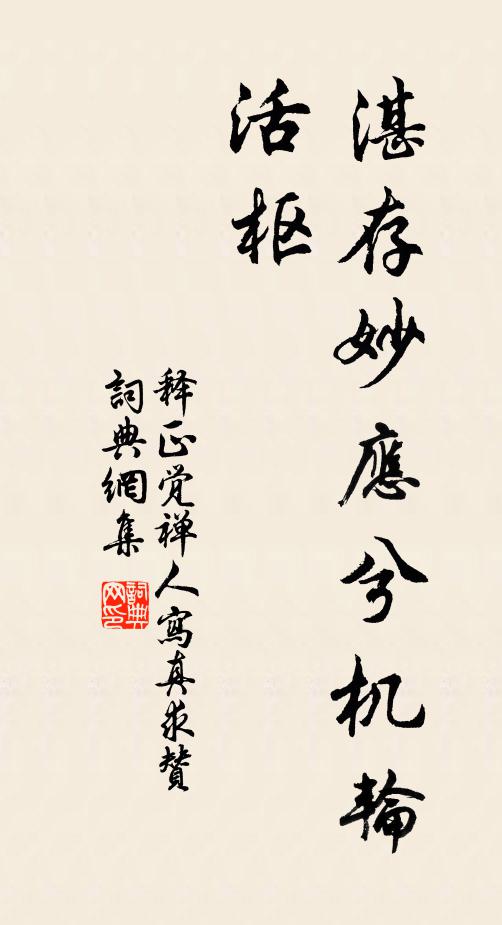 湛存妙應兮机輪
活枢
释正覚禅人寫真求贊
詞典網集
詞典網印